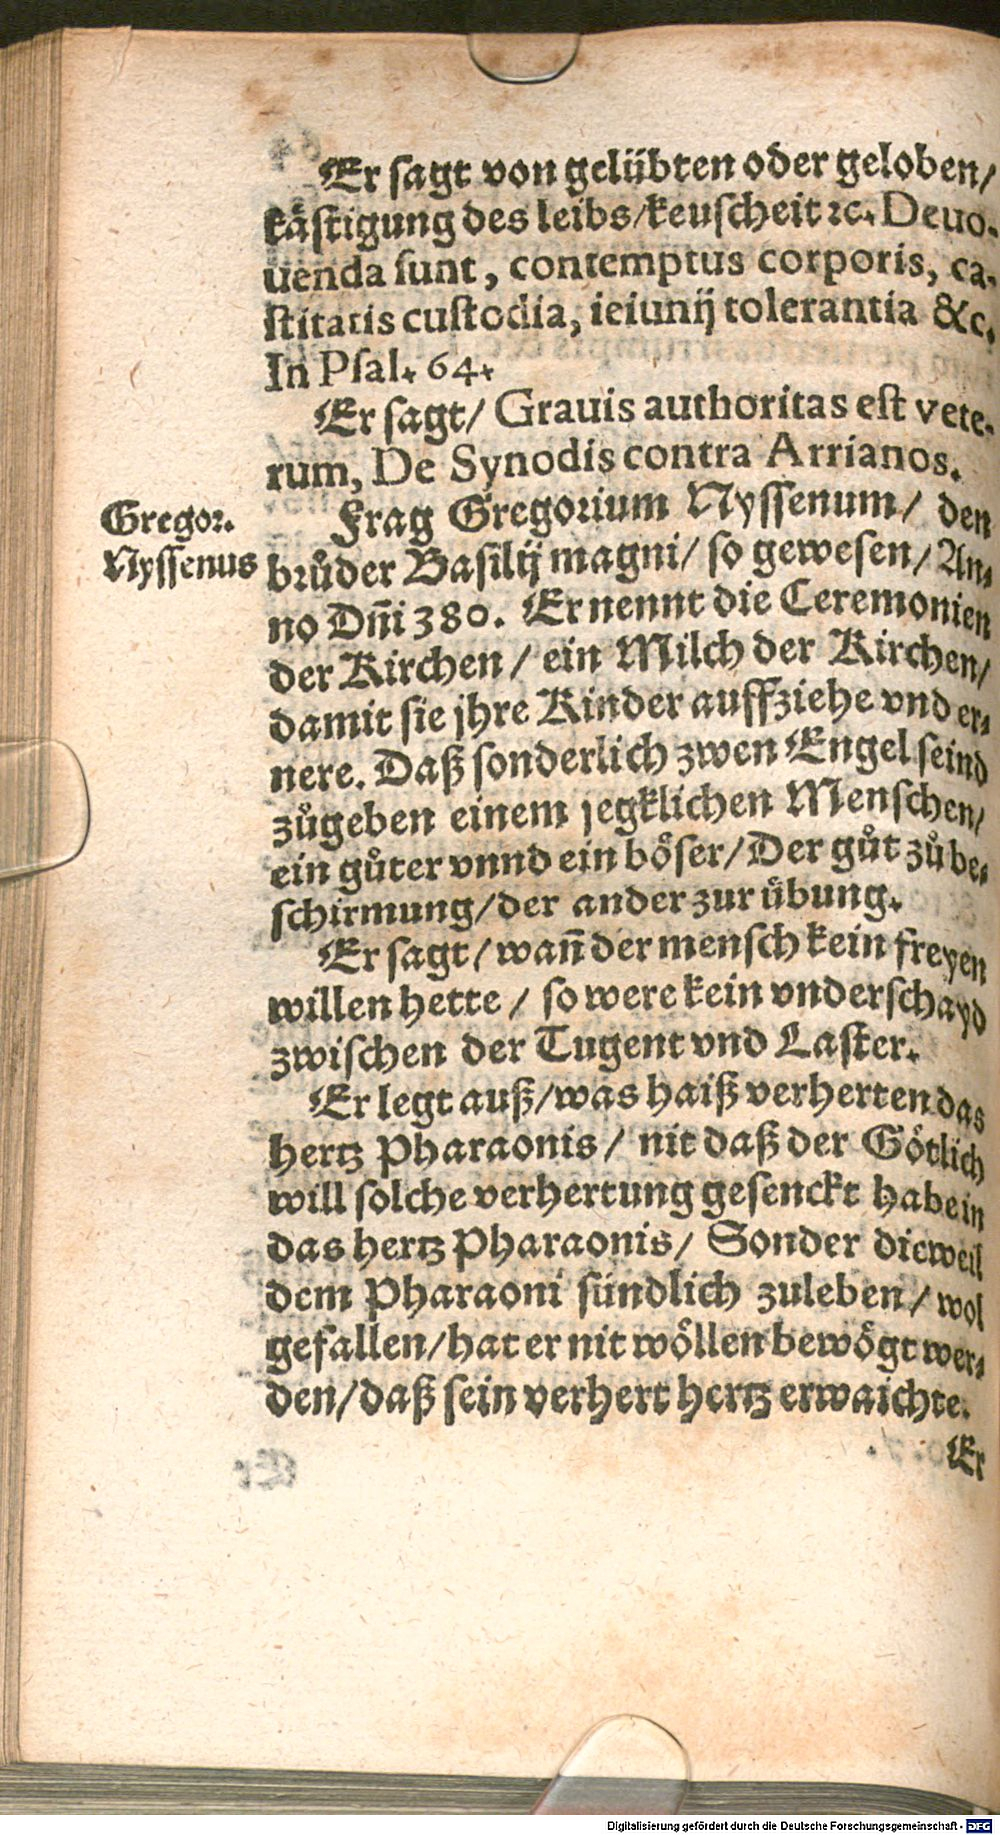 Er sagt von gelübten oder geloben/
kästigung des leibs/keuscheit ꝛc. Deuo-
uenda sunt, contemptus corporis, ca-
stitatis custodia, ieiunij tolerantia &c.
In Psal. 64.
Er sagt/ Grauis authoritas est vete-
rum, De Synodis contra Arrianos.
Gregor.
Nyssenus
Frag Gregorium Nyssenum/ den
brůder Basilij magni/ so gewesen/ An-
no Dñi 380. Er nennt die Ceremonien
der Kirchen/ ein Milch der Kirchen/
damit sie jhre Kinder auffziehe vnd er-
nere. Daß sonderlich zwen Engel seind
zůgeben einem jegklichen Menschen/
ein gůter vnnd ein böser/ Der gůt zů be-
schirmung/der ander zur übung.
Er sagt/ wañ der mensch kein freyen
willen hette/ so were kein vnderschayd
zwischen der Tugent vnd Laster.
Er legt auß/was haiß verherten das
hertz Pharaonis/ nit daß der Götlich
will solche verhertung gesenckt hab ein
das hertz Pharaonis/ Sonder dieweil
dem Pharaoni sündlich zuleben/ wol
gefallen/hat er nit wöllen bewögt wer-
den/daß sein verhert hertz erwaichte.
Er
Digitalisierung gefördert durch die Deutsche Forschungsgemeinschaft - DFG